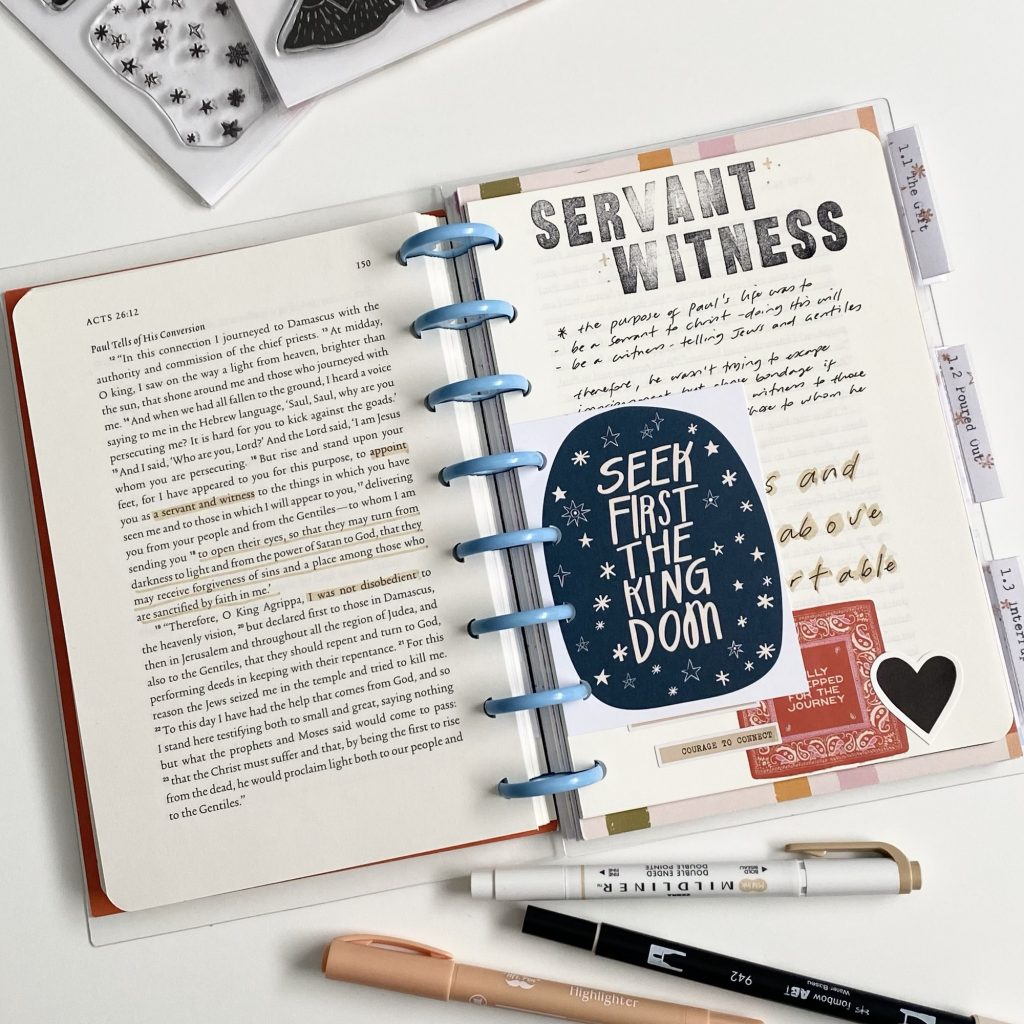 150
ACTS 26:12
Paul Tells of His Conversion
12 “In this connection I journeyed to Damascus with the
authority and commission of the chief priests. 13 At midday,
O king, I saw on the way a light from heaven, brighter than
the sun, that shone around me and those who journeyed with
me. 14 And when we had all fallen to the ground, I heard a voice
saying to me in the Hebrew language, ‘Saul, Saul, why are you
persecuting me? It is hard for you to kick against the goads.’
15 And I said, ‘Who are you, Lord?’ And the Lord said, ‘I am Jesus
whom you are persecuting. 16 But rise and stand upon your
feet, for I have appeared to you for this purpose, to appoint
you as a servant and witness to the things in which you have
seen me and to those in which I will appear to you, 17 delivering
you from your people and from the Gentiles—to whom I am
sending you 18 to open their eyes, so that they may turn from
darkness to light and from the power of Satan to God, that they
may receive forgiveness of sins and a place among those who
are sanctified by faith in me.’
19 “Therefore, O King Agrippa, I was not disobedient to
the heavenly vision, 20 but declared first to those in Damascus,
then in Jerusalem and throughout all the region of Judea, and
also to the Gentiles, that they should repent and turn to God,
performing deeds in keeping with their repentance. 21 For this
reason the Jews seized me in the temple and tried to kill me.
22 To this day I have had the help that comes from God, and so
I stand here testifying both to small and great, saying nothing
but what the prophets and Moses said would come to pass:
23 that the Christ must suffer and that, by being the first to rise
from the dead, he would proclaim light both to our people and
to the Gentiles.”
SERVANT
WITNESS
* the purpose of Paul's life was to
- be a servant to Christ - doing His will
- be a witness - telling Jews and Gentiles
therefore, he wasn't trying to escape
bondage if
witness to those
to whom he
and
above
SEEK
FIRST
THE
KING
DOM
FOR THE
JOURNEY
COURAGE TO CONNECT
1.1 The Gift
1.2 Poured Out
1.3
MILDLINER
DOUBLE ENDED
DOUBLE POINTE
ZEBRA
BOLD
BISEAU
FINE
FINE
942
Tombow ABT
Water Based
Highlighter